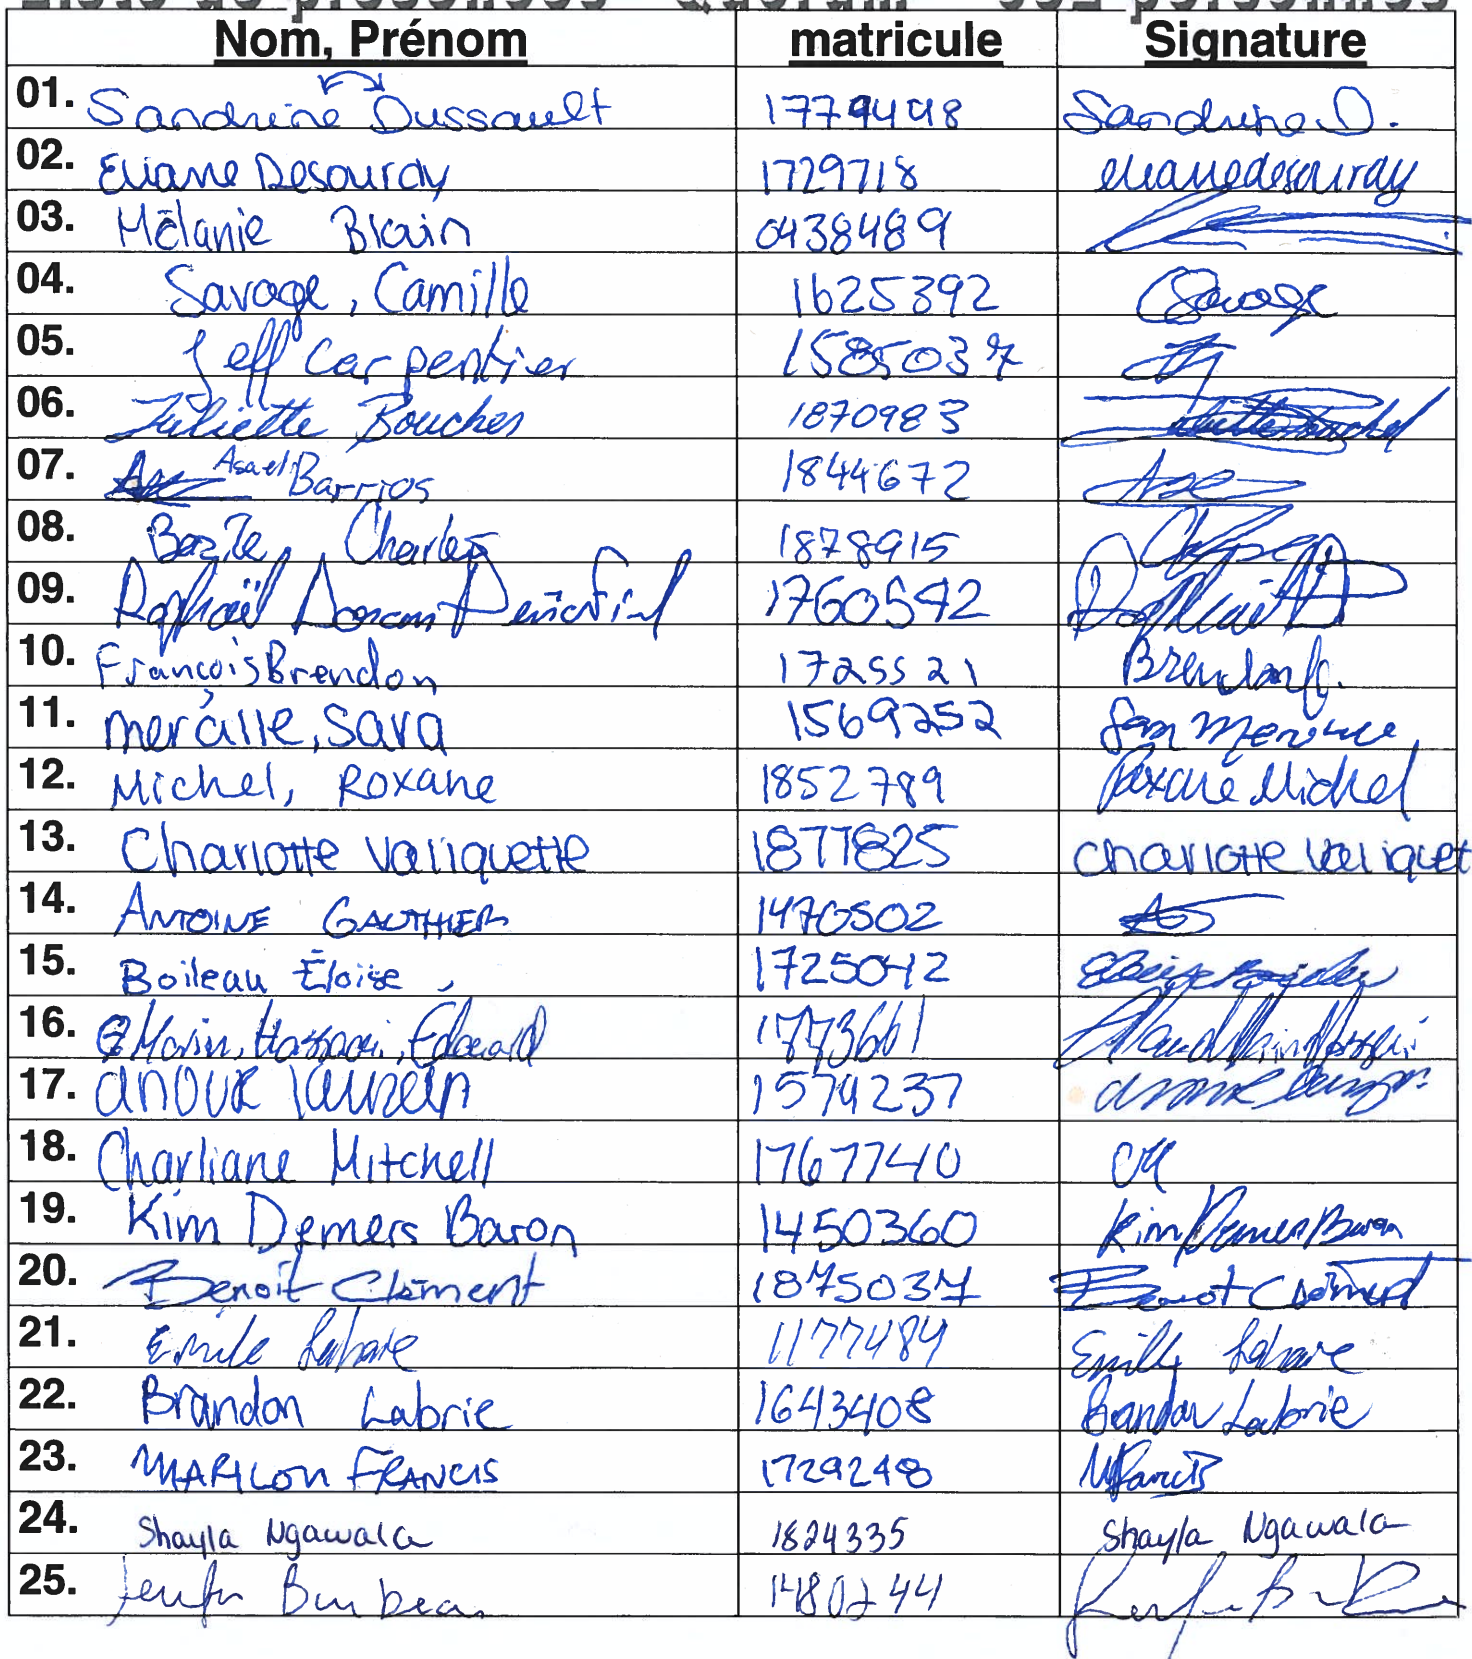 Liste de présences Quorum personnes
Nom, Prénom matricule Signature
01. Sandrine Dussault 1779498 Sandrine D.
02. Eliane Desouray 1729718 elianedesouray
03. Mélanie Blain 0438489
04. Savage, Camille 1625392 CSavage
05. Jeff Carpentier 1585037
06. Juliette Boucher 1870983
07. Asael Barrios 1844672
08. Bazile Charles 1878915
09. Raphaël 1760592
10. François Brendon 1725521 Brendon f.
11. Sara 1569252
12. Michel, Roxane 1852789 Roxane Michel
13. Charlotte Valiquette 1877825 Charlotte Valiquet
14. ANTOINE GAUTHIER 1470502
15. Boileau Éloise 1725042
16. Morin, Édouard 1773661
17. anouk 1579237
18. Charliane Mitchell 1767740 CM
19. Kim Demers Baron 1450360 Kim Demers Baron
20. Benoit Clément 1875037 Benoit Clément
21. 1177484
22. Brandon Labrie 1643408 Brandon Labrie
23. MARILOU FRANCIS 1729248 MFrancis
24. Shayla Ngawala 1824335 Shayla Ngawala
25. 1480244